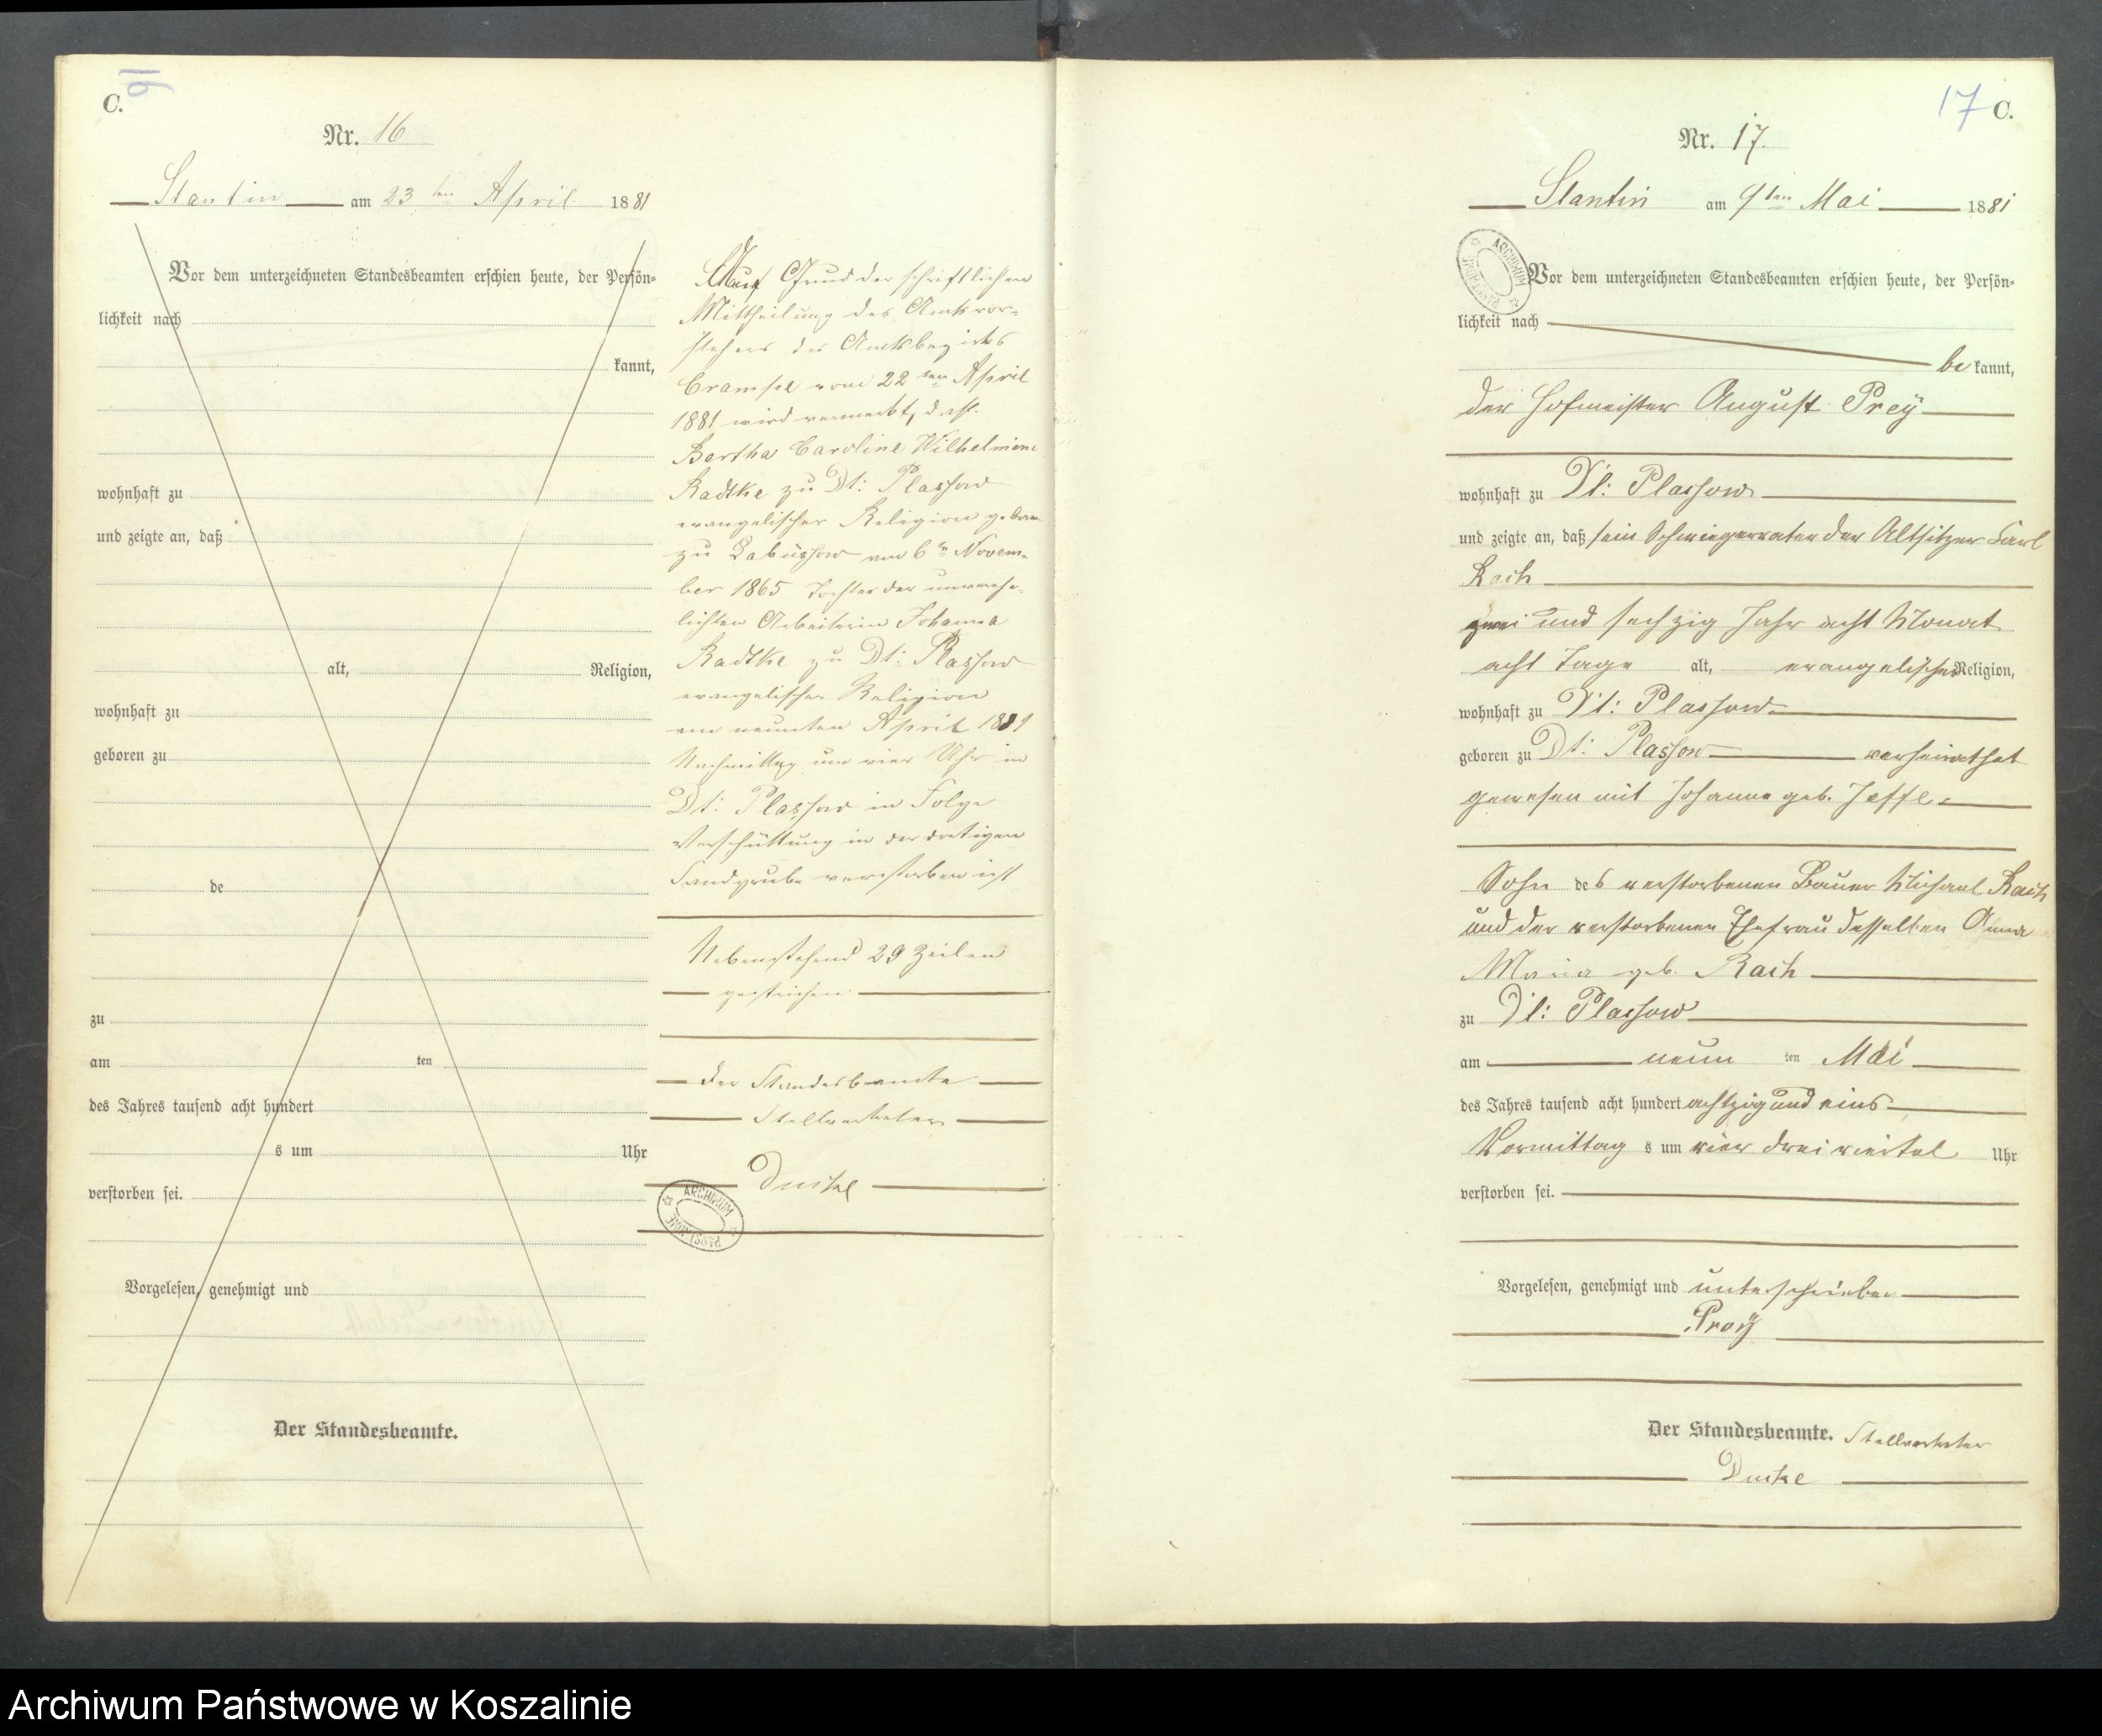 C.
16
Nr. 16
Stantin am 23 ten April 1881
Vor dem unterzeichneten Standesbeamten erschien heute, der Persön-
lichkeit nach
kannt,
wohnhaft zu
und zeigte an, daß
alt, Religion,
wohnhaft zu
geboren zu
de
zu
am ten
des Jahres tausend acht hundert
s um Uhr
verstorben sei.
Vorgelesen, genehmigt und
Der Standesbeamte.
Auf Grund der schriftlichen
Mittheilung des Amtsvor-
stehers des Amtsbezirks
Crampe vom 22 ten April
1881 wird vermerkt, daß
Bertha Caroline Wilhelmine
Radtke zu Dt: Plassow
evangelischer Religion geboren
zu Labüssow am 6 ten Novem-
ber 1865 Tochter der unverehe-
lichten Arbeiterin Johanna
Radtke zu Dt: Plassow
evangelischer Religion
am neunten April 1881
Nachmittag um vier Uhr in
Dt: Plassow in Folge
Verschüttung in der dortigen
Sandgrube verstorben ist
Nebenstehend 29 Zeilen
gestrichen
Der Standesbeamte
Stellvertreter
ARCHIWUM PAŃSTWOWE
17 C.
Nr. 17.
Stantin am 9 ten Mai 1881
ARCHIWUM PAŃSTWOWE
Vor dem unterzeichneten Standesbeamten erschien heute, der Persön-
lichkeit nach
be kannt,
der Hofmeister August Prey
wohnhaft zu Dt: Plassow
und zeigte an, daß sein Schwiegervater der Altsitzer Carl
Rach
zwei und sechzig Jahr acht Monat
acht Tage alt, evangelischer Religion,
wohnhaft zu Dt: Plassow
geboren zu Dt: Plassow verheirathet
gewesen mit Johanne geb.
Sohn des verstorbenen Bauer Michael Rach
und der verstorbenen Ehefrau desselben Anna
Maria geb. Rach
zu Dt: Plassow
am neun ten Mai
des Jahres tausend acht hundert achtzig und eins
Vormittag s um vier drei viertel Uhr
verstorben sei.
Vorgelesen, genehmigt und unterschrieben
Prey
Der Standesbeamte. Stellvertreter
Archiwum Państwowe w Koszalinie